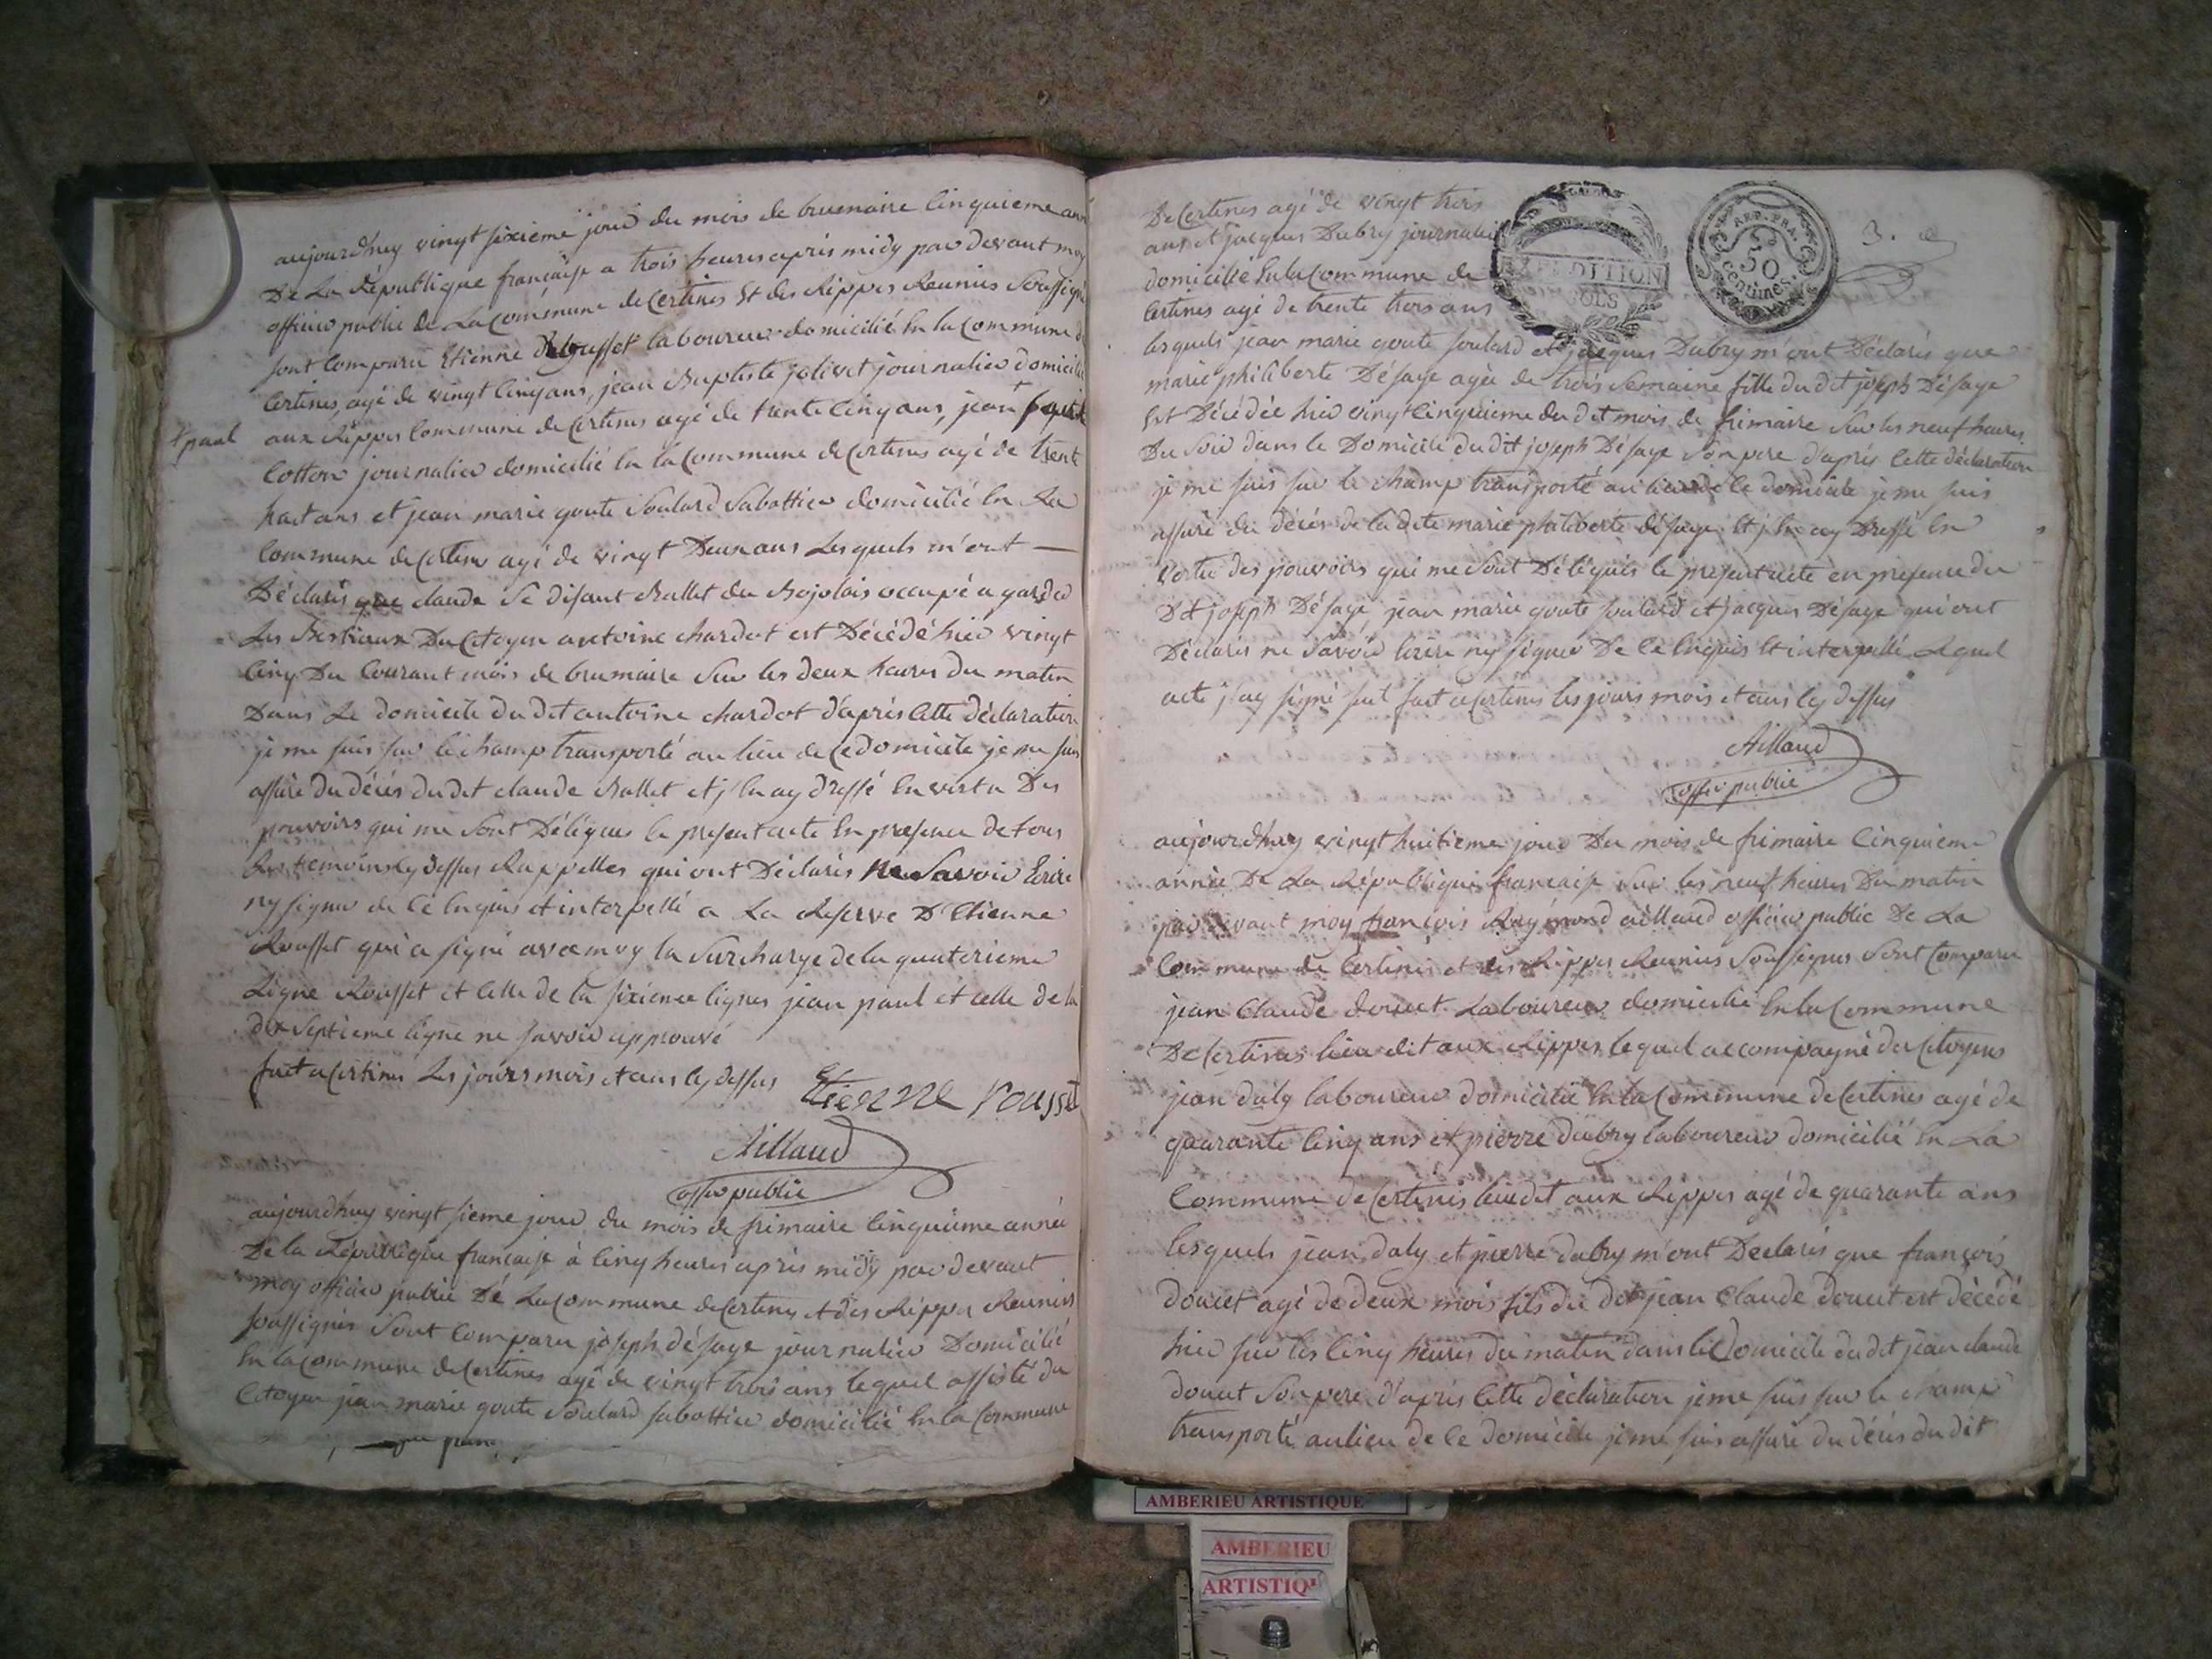 aujourdhuy vingt sixieme jour du mois de brumaire cinquieme anné
De La République française a trois heures apres midy par devant moy
officier public de La Commune de Certines Et des Rippes Reunies soussigné
sont comparu Etienne Rousset laboureur domicilié En la Commune de
Certines, agé de vingt cinq ans, jean Baptiste jolivet journalier domicilié
aux Rippes Commune de Certines agé de trente cinq ans, jean +
+ paul
Cotton journalier domicilié En la Commune de Certines agé de trente
huit ans et jean marie goute Soulard Sabottier domicilié En La
Commune de Certines agé de vingt Deux ans Lesquels m'ont
Déclarés que claude Se disant Ballet du Bojolais occupé a garder
Les Bestiaux Du Citoyen antoine chardot est Décédé hier vingt
cinq Du Courant mois de brumaire Sur les deux heures du matin
Dans Le domicile du dit antoine chardot d'après Cette déclaration
je me suis sur le champ transporté au lieu de Ce domicile je me suis
assuré du décés du dit claude Ballet et j'En ay dressé En vertu Des
pouvoirs qui me Sont Délégués le present acte En presence de tous
Les temoins cy dessus Rappelles qui ont Déclarés ne Savoir Ecrire
ny signer de Ce Enquis et interpellé a La Reserve D'Etienne
Rousset qui a signé avec moy la Surcharge de la quatrieme
Ligne Rousset et Celle de la sixieme lignes jean paul et celle de la
dix Septieme ligne ne savoir approuvé
fait a Certines Les jours mois et ans Cy dessus
Etienne rousset
Aillaud
offier public
aujourdhuy vingt sieme jour du mois de frimaire Cinquieme année
De la République francaise à Cinq heures après midy par devant
moy officier public De La Commune de Certines et des Rippes Reunies
soussignés Sont Comparu joseph désage journalier Domicilié
En la Commune de Certines agé de vingt trois ans lequel assisté du
Citoyen jean marie goute Soulard sabottier domicilié En la Commune
De Certines agé de vingt trois
ans et jacques Dubry journalier
domicilié En la Commune de
Certines agé de trente trois ans
EXPEDITION
SOLS
REP. FRA.
50
centimes
3.
lesquels jean marie goute soulard et jacques Dubry m'ont Déclarés que
marie philiberte Désage agée de trois Semaine fille du dit joseph Désage
Est Décédée hier vingt Cinquieme du dit mois de frimaire Sur les neuf heures
Du Soir dans le Domicile du dit joseph Désage Son pere d'après Cette déclaration
je me suis sur le champ transporté au lieu de Ce domicile je me suis
assuré du décés de la dite marie philiberte désage Et j'En ay Dressé En
vertu des pouvoirs qui me Sont Délégués le present acte en presence du
Dit joseph Désage jean marie goute soulard et jacques Désage qui ont
Déclarés ne Savoir Ecrire ny signer De Ce Enquis Et interpellé Lequel
acte j'ay signé fait a Certines les jours mois et ans Cy dessus
Aillaud
offier public
aujourdhuy vingt huitieme jour Du mois de frimaire Cinquieme
année De La République francaise Sur les neuf heures Du matin
par devant moy françois Raymond aillaud officier public De La
Commune de Certines et des Rippes Reunies Soussignes Sont Comparu
jean Claude doucet Laboureur domicilié En la Commune
De Certines lieu dit aux Rippes lequel accompagné des Citoyens
jean daly laboureur domicilié En la Commune de Certines agé de
quarante Cinq ans et pierre dubry laboureur domicilié En La
Commune de Certines lieu dit aux Rippes agé de quarante ans
lesquels jean daly et pierre dubry m'ont Declarés que françois
doucet agé de deux mois fils du dit jean Claude doucet est décédé
hier sur les Cinq heures du matin dans le Domicile du dit jean claude
doucet Son pere d'après Cette déclaration je me suis sur le champ
transporté au lieu de Ce domicile je me suis assuré du décés du dit
AMBERIEU ARTISTIQUE
AMBERIEU
ARTISTIQ